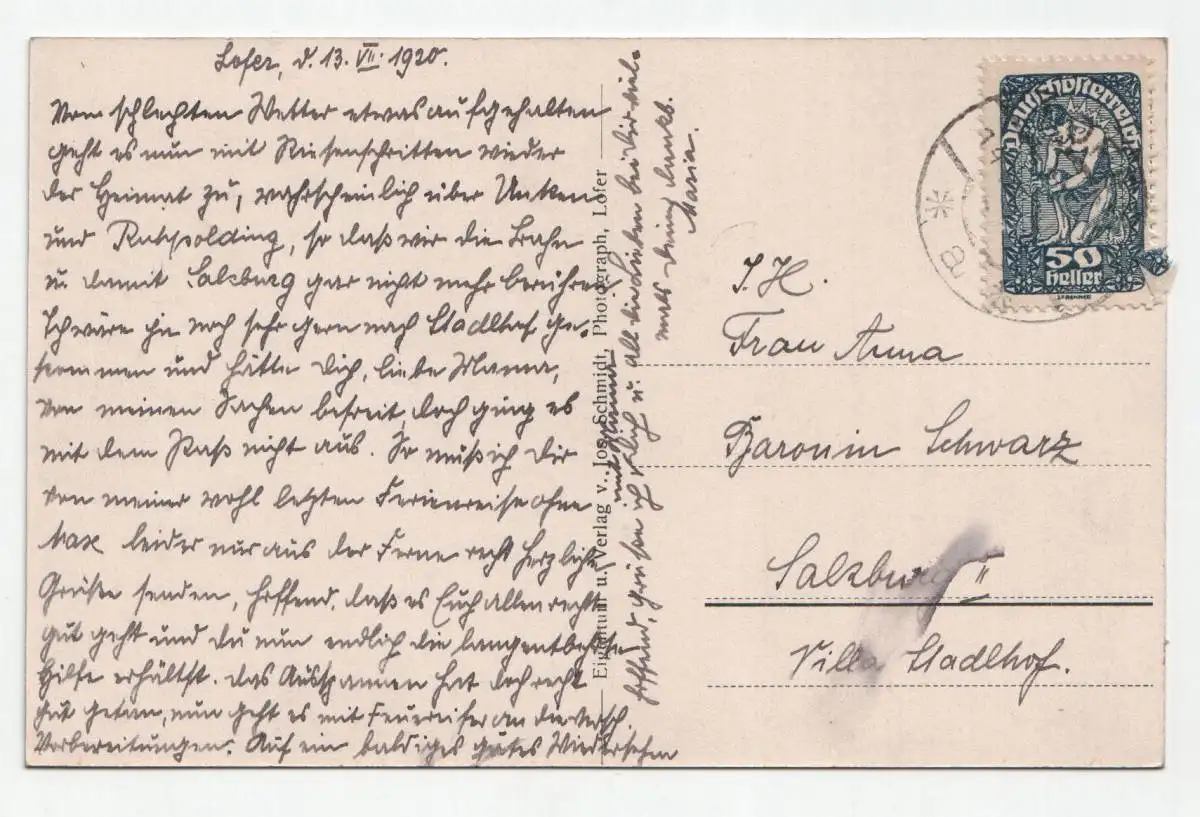 Lofer, d. 13. VII. 1920.
Vom schlechten Wetter etwas aufgehalten
geht es nun mit Riesenschritten wieder
der Heimat zu, wahrscheinlich über Unken
und Ruhpolding, so daß wir die Bahn
u. damit Salzburg gar nicht mehr berühren.
Ich wäre so noch sehr gern nach Stadlhof ge-
kommen und hätte Dich, liebe Mama,
von meinen Sachen befreit, doch ging es
mit dem Paß nicht aus. So muß ich Dir
von meiner wohl letzten Ferienreise ohne
Max leider nur aus der Ferne recht herzliche
Grüße senden, hoffend, daß es Euch allen recht
gut geht und Du nun endlich die langentbehrte
Hilfe erhältst. Das Ausspannen hat doch recht
gut getan, nun geht es mit Feuereifer an die versch.
Vorbereitungen. Auf ein baldiges gutes Wiedersehen
hoffend, grüßen ich Dich u. all die Lieben bei Dir viel-
mals Deine dankb.
Maria.
Eigentum u. Verlag v. Jos. Schmidt, Photograph, Lofer
Deutschösterreich
50
Heller
8
I. H.
Frau Anna
Baronin Schwarz
Salzburg
Villa Stadlhof.